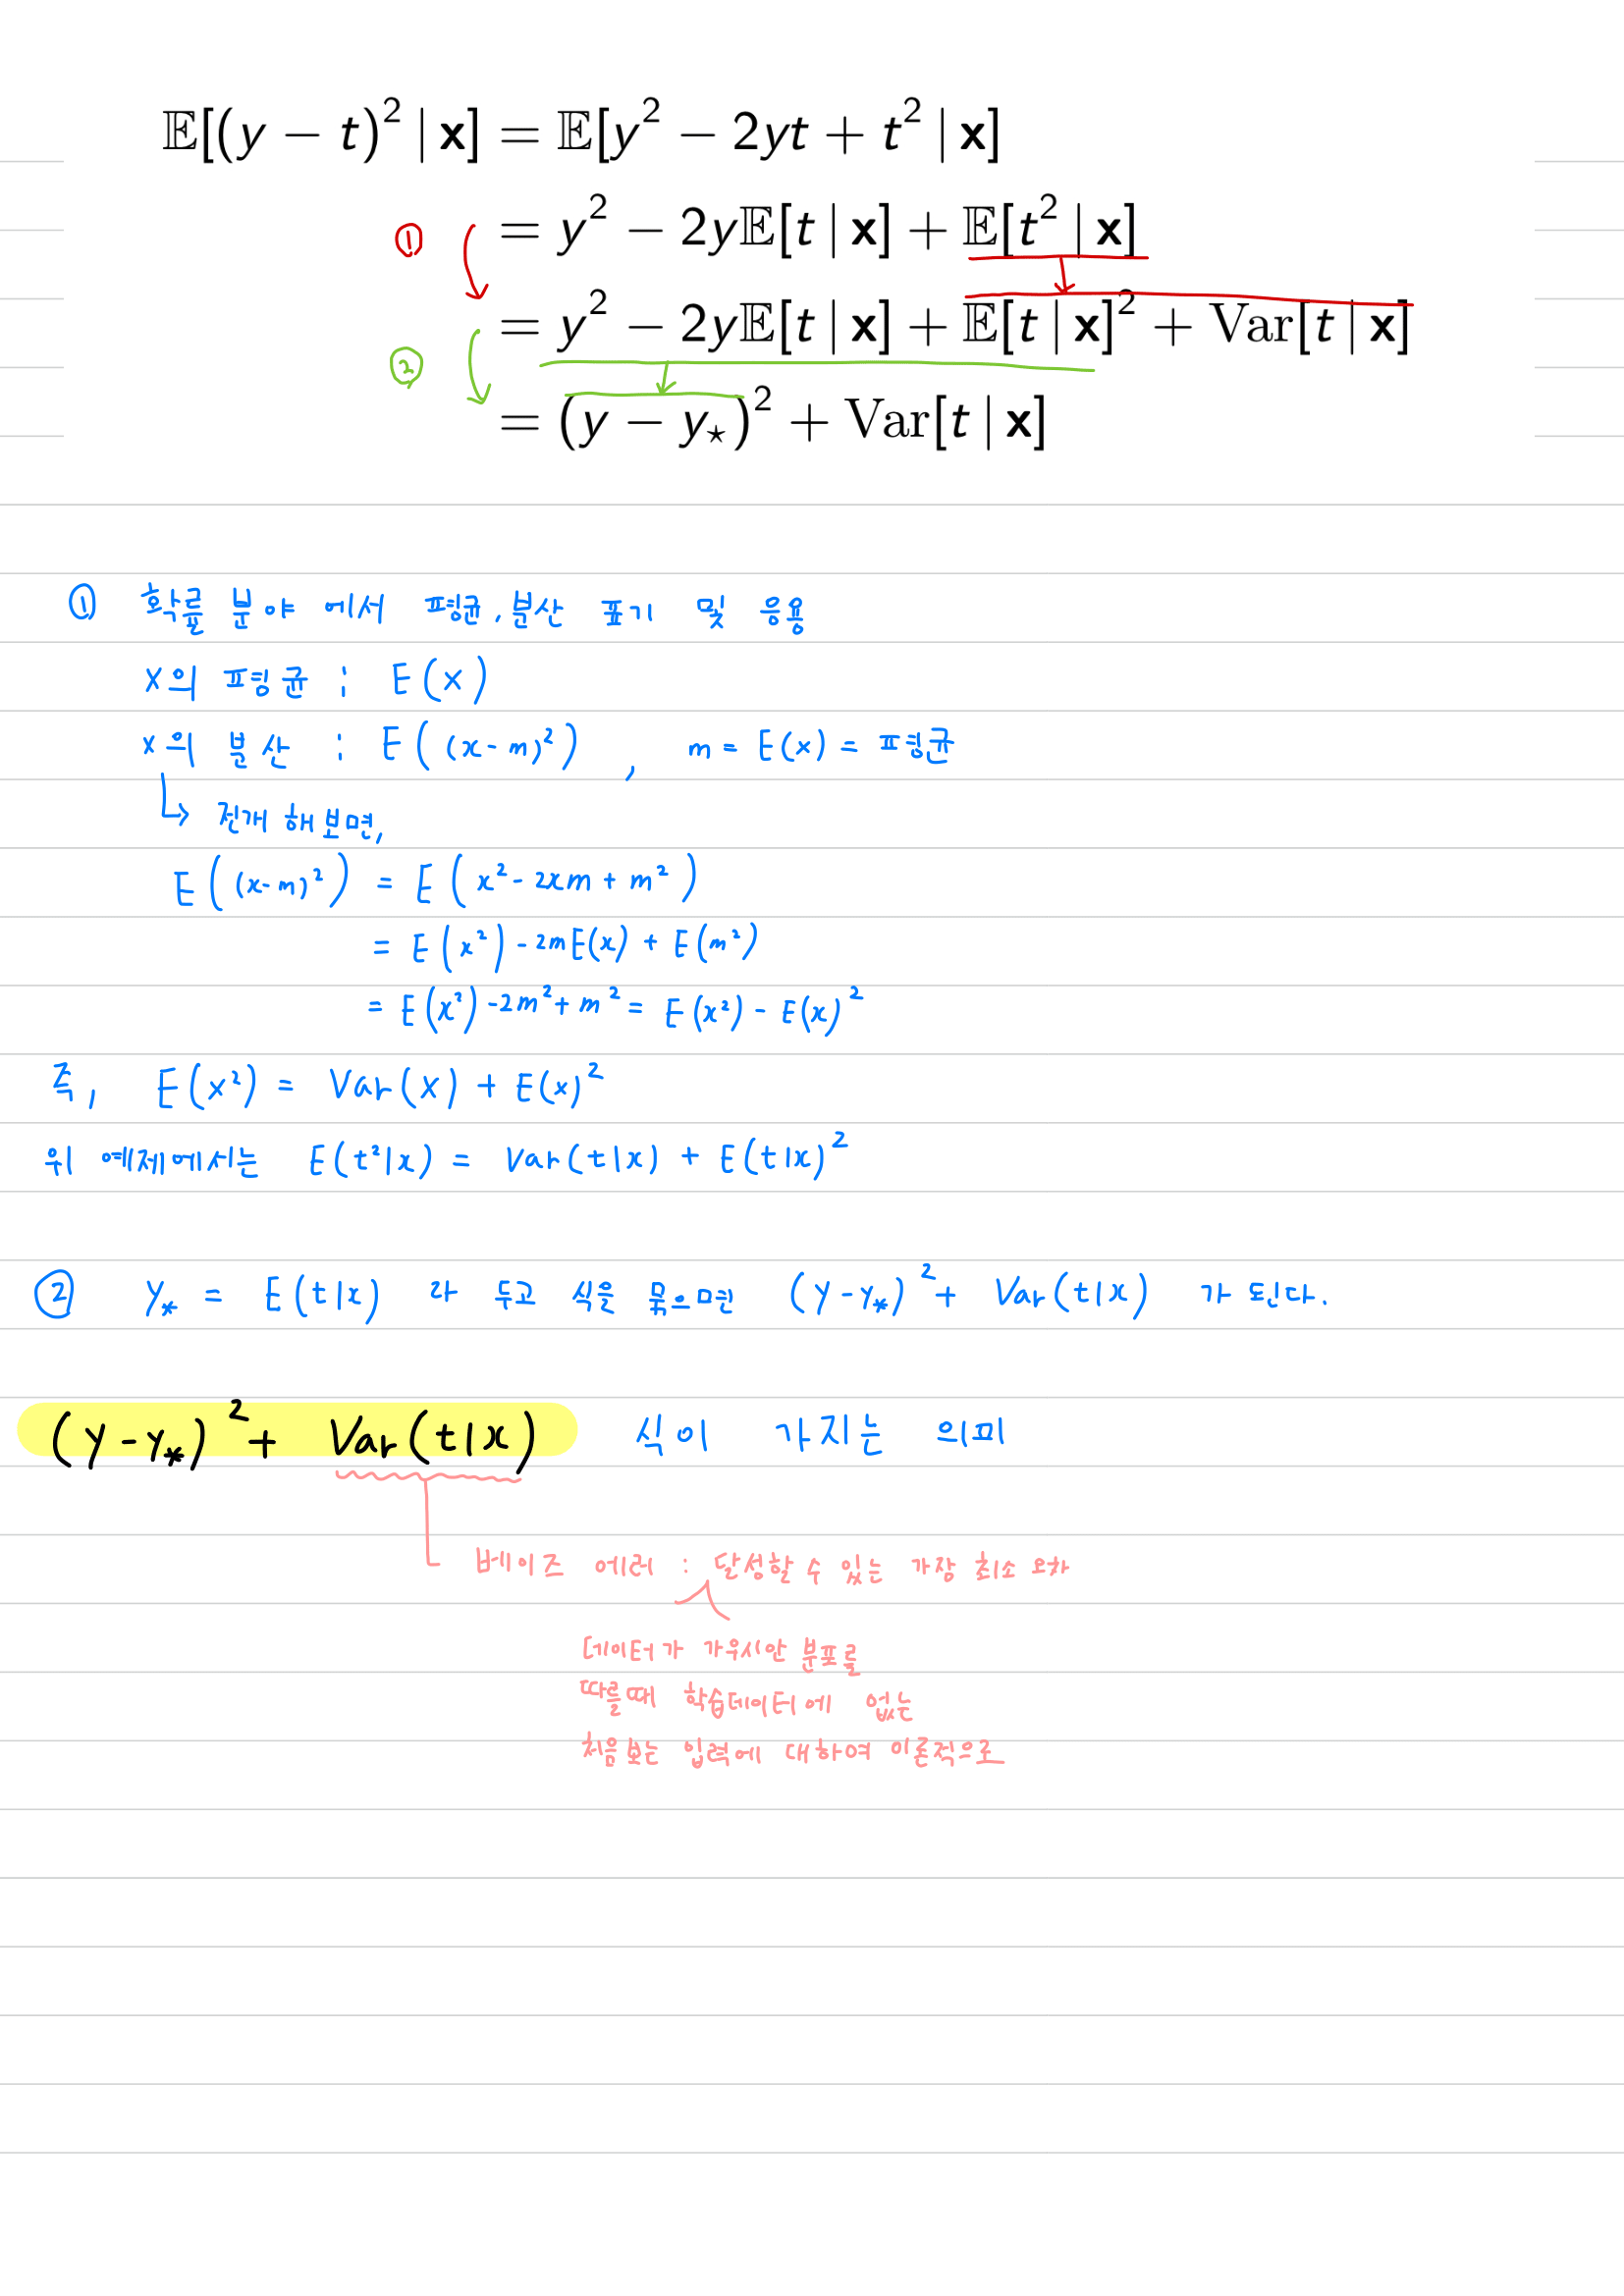 𝔼[(y − t)² | x] = 𝔼[y² − 2yt + t² | x]
= y² − 2y𝔼[t | x] + 𝔼[t² | x]
①
= y² − 2y𝔼[t | x] + 𝔼[t | x]² + Var[t | x]
②
= (y − y⋆)² + Var[t | x]
① 확률 분야 에서 평균, 분산 표기 및 응용
X의 평균 : E(X)
X의 분산 : E((x-m)²) , m = E(x) = 평균
↳ 전개 해보면,
E((x-m)²) = E(x² - 2xm + m²)
= E(x²) - 2mE(x) + E(m²)
= E(x²) - 2m² + m² = E(x²) - E(x)²
즉, E(X²) = Var(X) + E(x)²
위 예제에서는 E(t²|x) = Var(t|x) + E(t|x)²
② y* = E(t|x) 라 두고 식을 묶으면 (y-y*)² + Var(t|x) 가 된다.
(y-y*)² + Var(t|x) 식이 가지는 의미
베이즈 에러 : 달성할 수 있는 가장 최소 오차
데이터가 가우시안 분포를
따를때 학습데이터에 없는
처음 보는 입력에 대하여 이론적으로